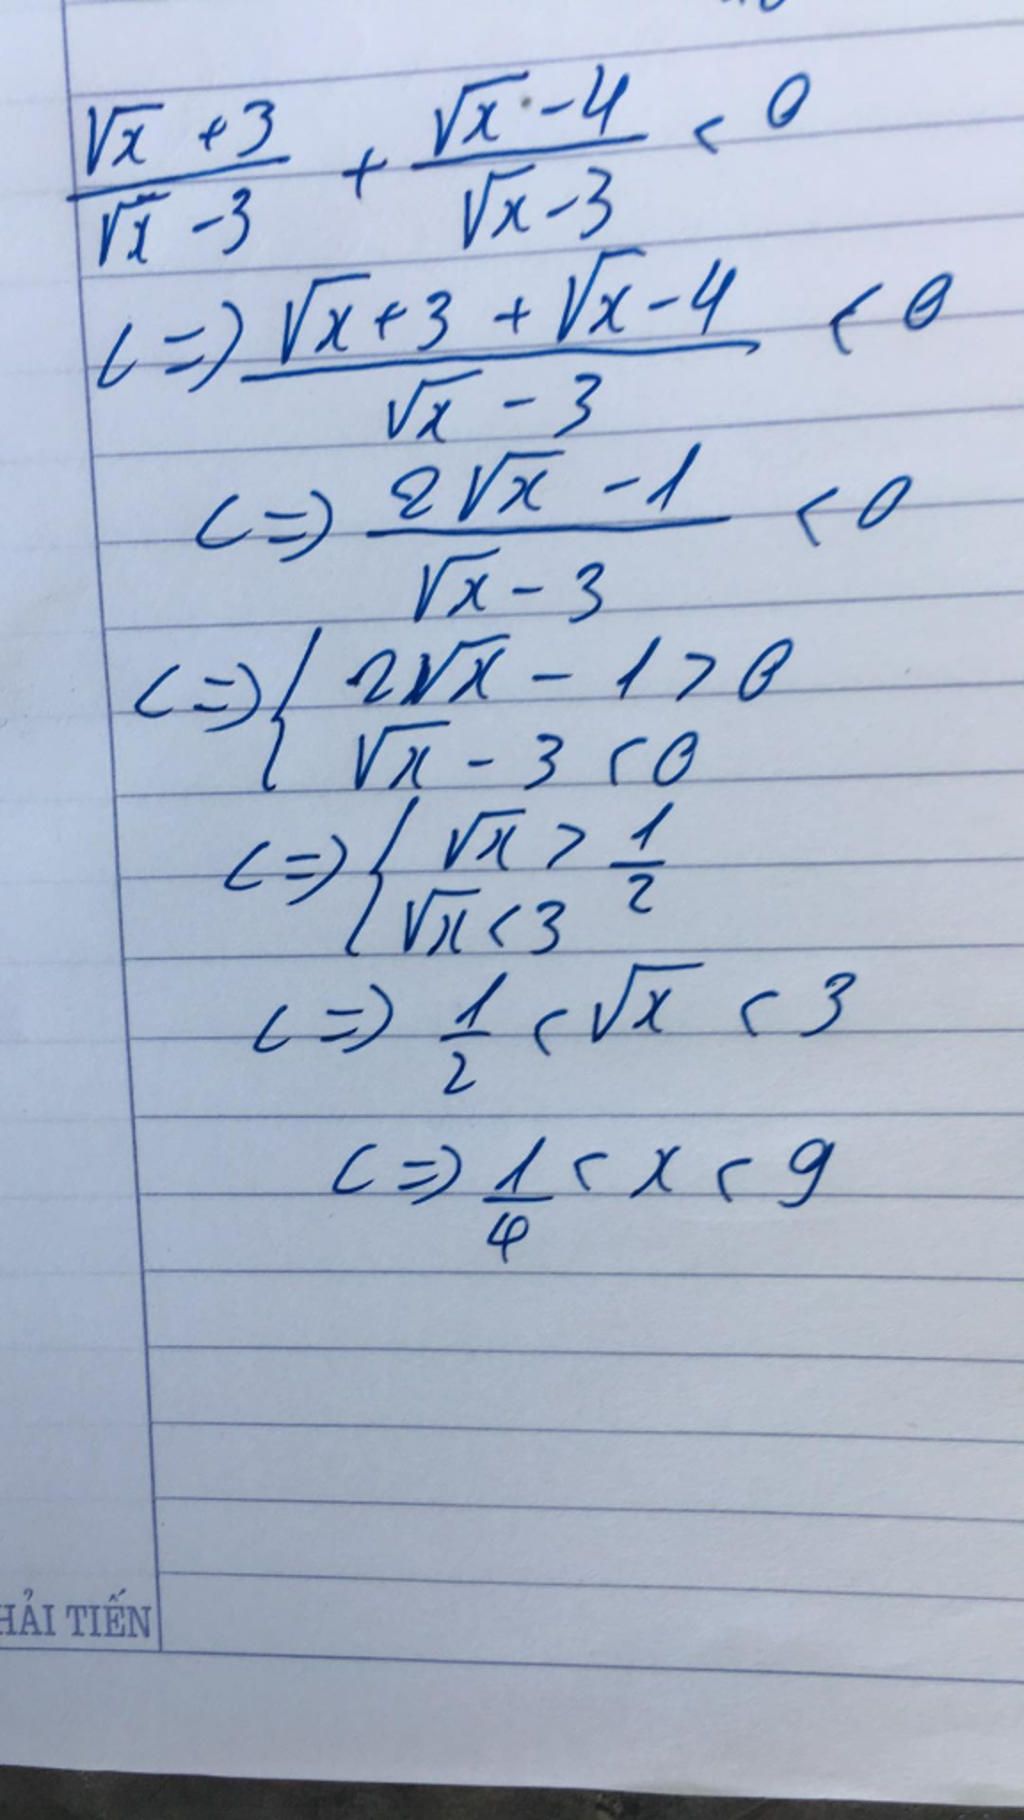 (√x + 3)/(√x - 3) + (√x - 4)/(√x - 3) < 0
<=> (√x + 3 + √x - 4)/(√x - 3) < 0
<=> (2√x - 1)/(√x - 3) < 0
<=> { 2√x - 1 > 0
√x - 3 < 0
<=> { √x > 1/2
√x < 3
<=> 1/2 < √x < 3
<=> 1/4 < x < 9
HẢI TIẾN